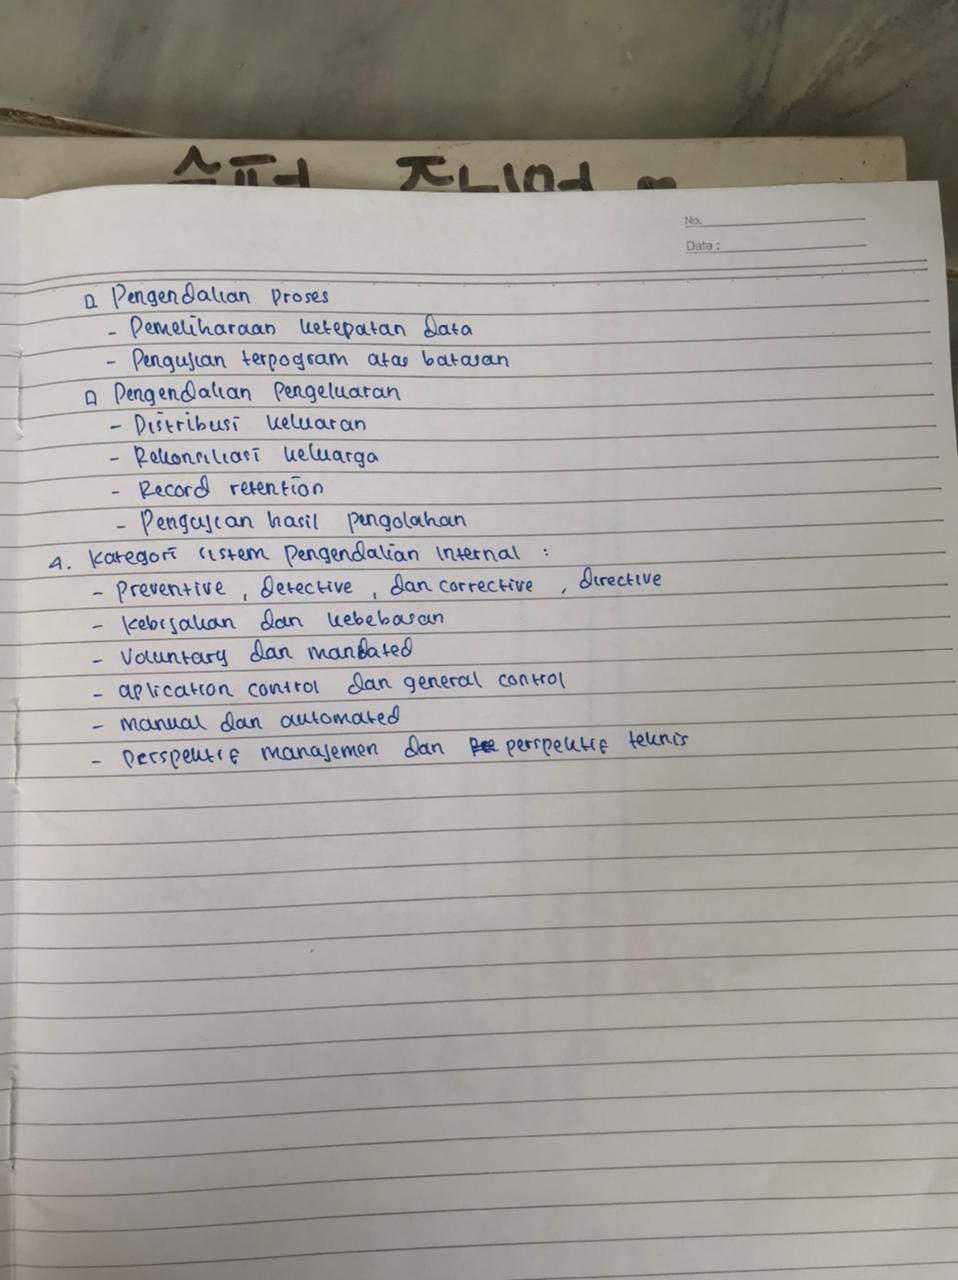 슈퍼 주니어
No.
Date :
□ Pengendalian Proses
- Pemeliharaan ketepatan data
- Pengujian terpogram atas batasan
□ Pengendalian Pengeluaran
- Distribusi keluaran
- Rekonsiliasi keluarga
- Record retention
- Pengujian hasil pengolahan
4. Kategori sistem Pengendalian Internal :
- Preventive , detective , dan corrective , directive
- Kebijakan dan kebebasan
- Voluntary dan mandated
- aplication control dan general control
- manual dan automated
- Perspektif manajemen dan perspektif teknis